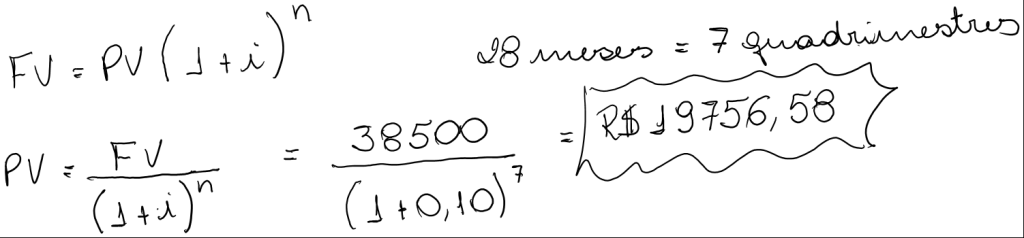 FV = PV (1 + i)^n
28 meses = 7 quadrimestres
PV = FV / (1 + i)^n = 38500 / (1 + 0,10)^7 = R$ 19756,58